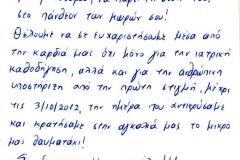 στο πάνθεον των μωρών σου!
Θέλουμε να σε ευχαριστήσουμε μέσα από
την καρδιά μας όχι μόνο για την ιατρική
καθοδήγηση, αλλά και για την ανθρώπινη
υποστήριξη από την πρώτη στιγμή, μέχρι
τις 3/10/2012, την ημέρα που αντικρύσαμε
και κρατήσαμε στην αγκαλιά μας το μικρό
μας θαυματάκι!